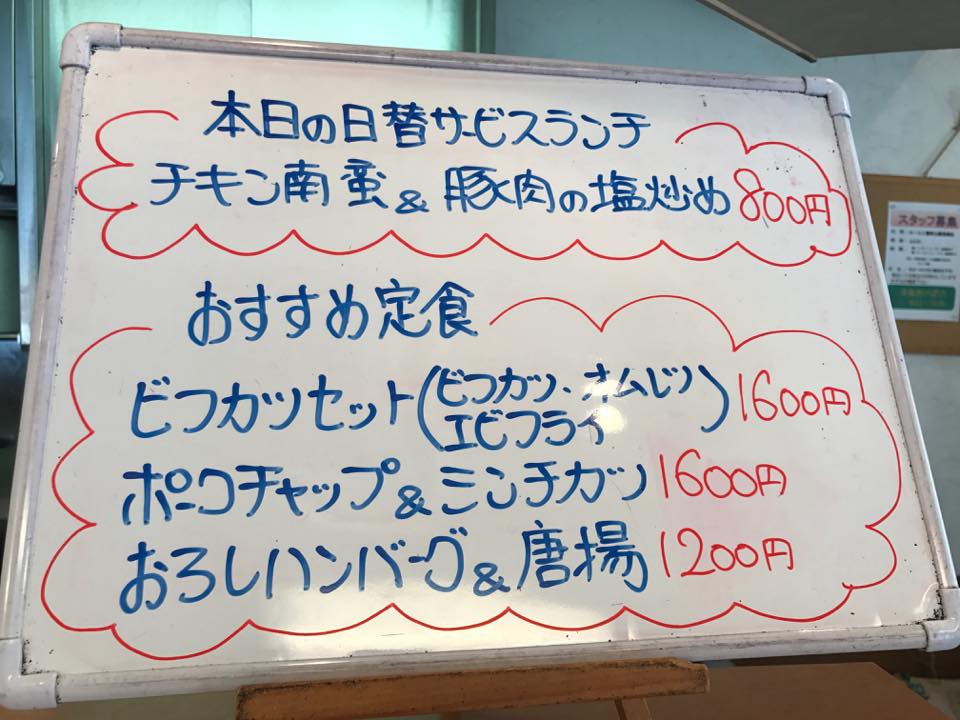 本日の日替サービスランチ
チキン南蛮&豚肉の塩炒め 800円
おすすめ定食
ビフカツセット(ビフカツ、オムレツ エビフライ) 1600円
ポークチャップ&ミンチカツ 1600円
おろしハンバーグ&唐揚 1200円
スタッフ募集